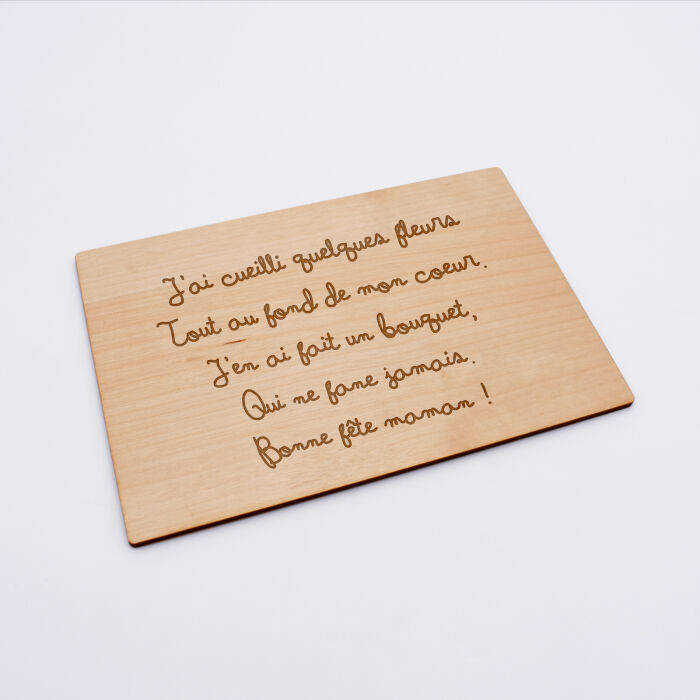 J'ai cueilli quelques fleurs
Tout au fond de mon coeur.
J'en ai fait un bouquet,
Qui ne fane jamais.
Bonne fête maman !